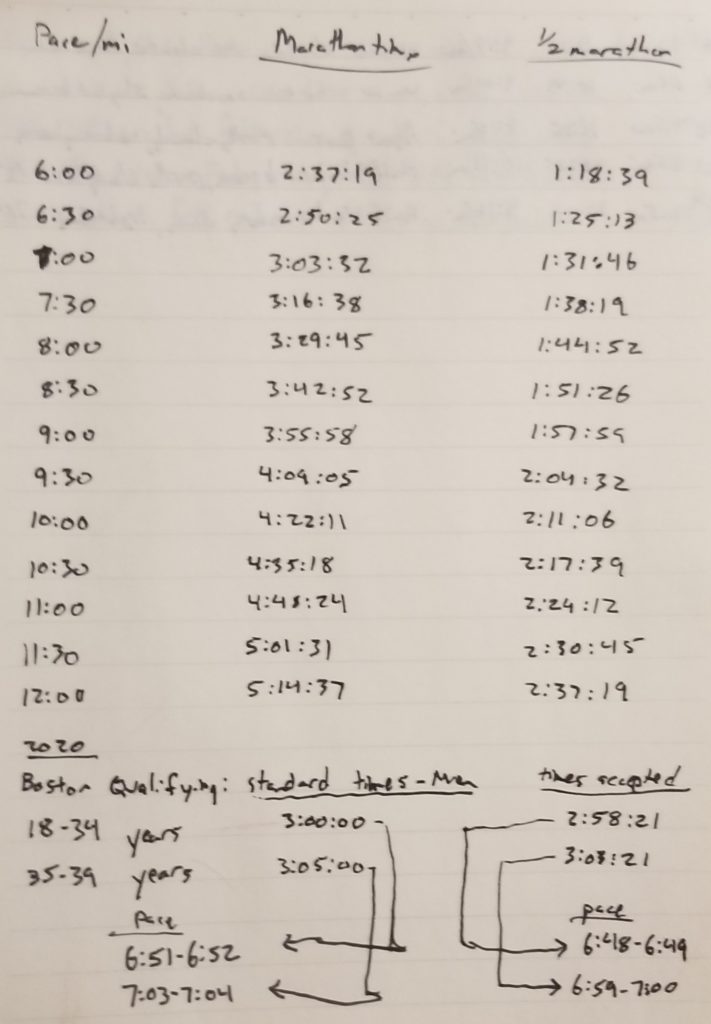 Pace/mi Marathon time 1/2 marathon
6:00 2:37:19 1:18:39
6:30 2:50:25 1:25:13
7:00 3:03:32 1:31:46
7:30 3:16:38 1:38:19
8:00 3:29:45 1:44:52
8:30 3:42:52 1:51:26
9:00 3:55:58 1:57:59
9:30 4:09:05 2:04:32
10:00 4:22:11 2:11:06
10:30 4:35:18 2:17:39
11:00 4:48:24 2:24:12
11:30 5:01:31 2:30:45
12:00 5:14:37 2:37:19
2020
Boston Qualifying: standard times - Men times accepted
18-34 years 3:00:00 2:58:21
35-39 years 3:05:00 3:03:21
Pace pace
6:51-6:52 6:48-6:49
7:03-7:04 6:59-7:00